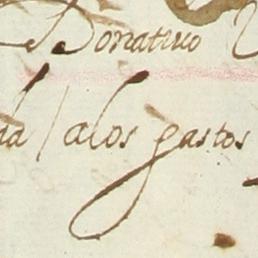 Donativo
da / a los gastos